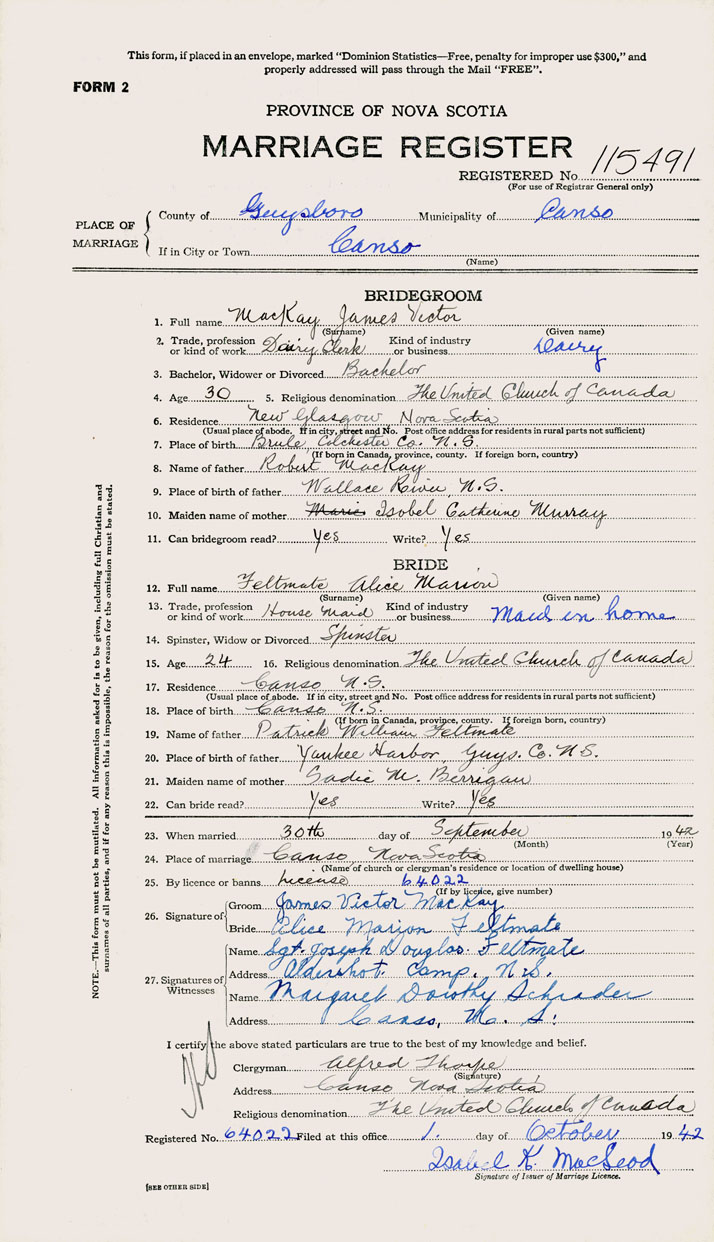 This form, if placed in an envelope, marked "Dominion Statistics—Free, penalty for improper use $300," and
properly addressed will pass through the Mail "FREE".
FORM 2
PROVINCE OF NOVA SCOTIA
MARRIAGE REGISTER
REGISTERED No. 115491
(For use of Registrar General only)
PLACE OF MARRIAGE
County of Guysboro Municipality of Canso
If in City or Town Canso
(Name)
BRIDEGROOM
1. Full name MacKay James Victor
(Surname) (Given name)
2. Trade, profession or kind of work Dairy Clerk Kind of industry or business Dairy
3. Bachelor, Widower or Divorced Bachelor
4. Age 30 5. Religious denomination The United Church of Canada
6. Residence New Glasgow Nova Scotia
(Usual place of abode. If in city, street and No. Post office address for residents in rural parts not sufficient)
7. Place of birth Brule Colchester Co. N.S.
(If born in Canada, province, county. If foreign born, country)
8. Name of father Robert MacKay
9. Place of birth of father Wallace River, N.S.
10. Maiden name of mother Marie Isobel Catherine Murray
11. Can bridegroom read? Yes Write? Yes
BRIDE
12. Full name Feltmate Alice Marion
(Surname) (Given name)
13. Trade, profession or kind of work House Maid Kind of industry or business Maid in home
14. Spinster, Widow or Divorced Spinster
15. Age 24 16. Religious denomination The United Church of Canada
17. Residence Canso N.S.
(Usual place of abode. If in city, street and No. Post office address for residents in rural parts not sufficient)
18. Place of birth Canso N.S.
(If born in Canada, province, county. If foreign born, country)
19. Name of father Patrick William Feltmate
20. Place of birth of father Yankee Harbor, Guys. Co. N.S.
21. Maiden name of mother Sadie M. Berrigan
22. Can bride read? Yes Write? Yes
23. When married 30th day of September 1942
(Month) (Year)
24. Place of marriage Canso, Nova Scotia
(Name of church or clergyman's residence or location of dwelling house)
25. By licence or banns License 64022
(If by licence, give number)
26. Signature of
Groom James Victor MacKay
Bride Alice Marion Feltmate
27. Signatures of Witnesses
Name Sgt. Joseph Douglas Feltmate
Address Aldershot Camp, N.S.
Name Margaret Dorothy Schrader
Address Canso, N. S.
I certify the above stated particulars are true to the best of my knowledge and belief.
Clergyman Alfred Thorpe
(Signature)
Address Canso Nova Scotia
Religious denomination The United Church of Canada
Registered No. 64022 Filed at this office 1. day of October 1942
Isabel K. MacLeod
Signature of Issuer of Marriage Licence.
[SEE OTHER SIDE]
NOTE.—This form must not be mutilated. All information asked for is to be given, including full Christian and
surnames of all parties, and if for any reason this is impossible, the reason for the omission must be stated.